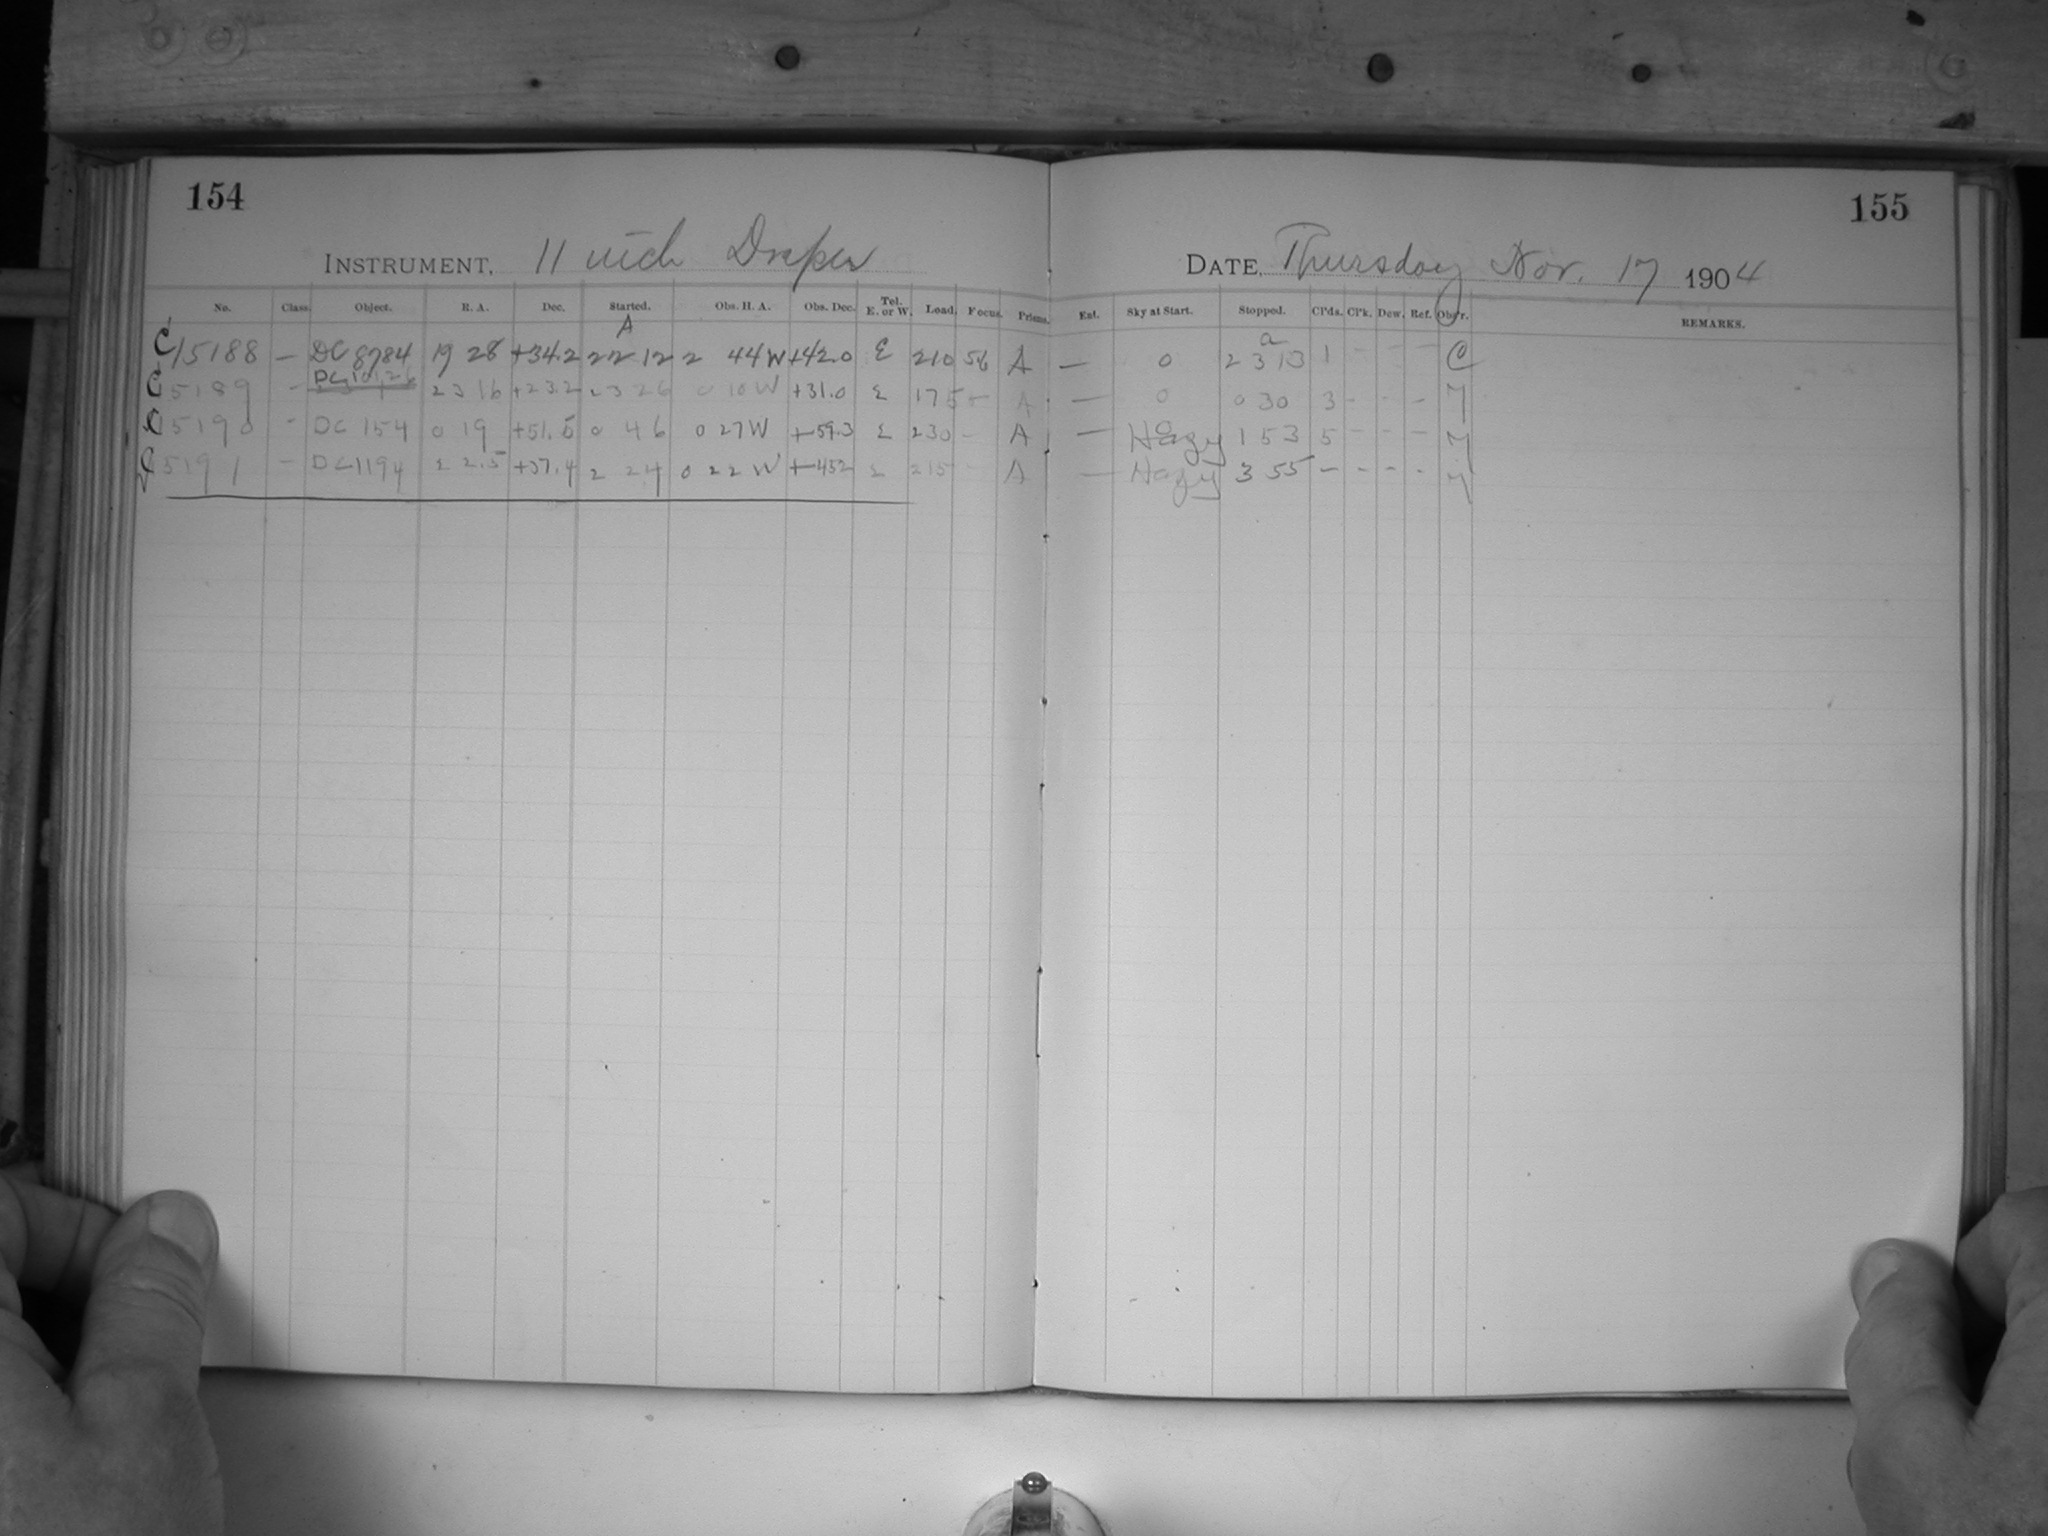 154
155
INSTRUMENT, 11 inch Draper
DATE, Thursday Nov. 17 1904
No. Class. Object. R. A. Dec. Started. Obs. H. A. Obs. Dec. Tel. E. or W. Load. Focus. Prisms. Ext. Sky at Start. Stopped. Cl'ds. Cl'k. Dew. Ref. Obs'r. REMARKS.
A a
C 15188 — DC 8784 19 28 +34.2 22 12 2 44 W +42.0 E 210 56 A — 0 23 13 1 - - - C
C 5189 - DC 10126 23 16 +23.2 23 26 0 10 W +31.0 E 175 - A — 0 0 30 3 - - -
C 5190 - DC 154 0 19 +51.5 0 46 0 27 W +59.3 E 230 - A — Hazy 1 53 5 - - -
C 5191 - DC 1194 2 2.5 +37.4 2 24 0 22 W +452 E 215 A — Hazy 3 55 - - - -